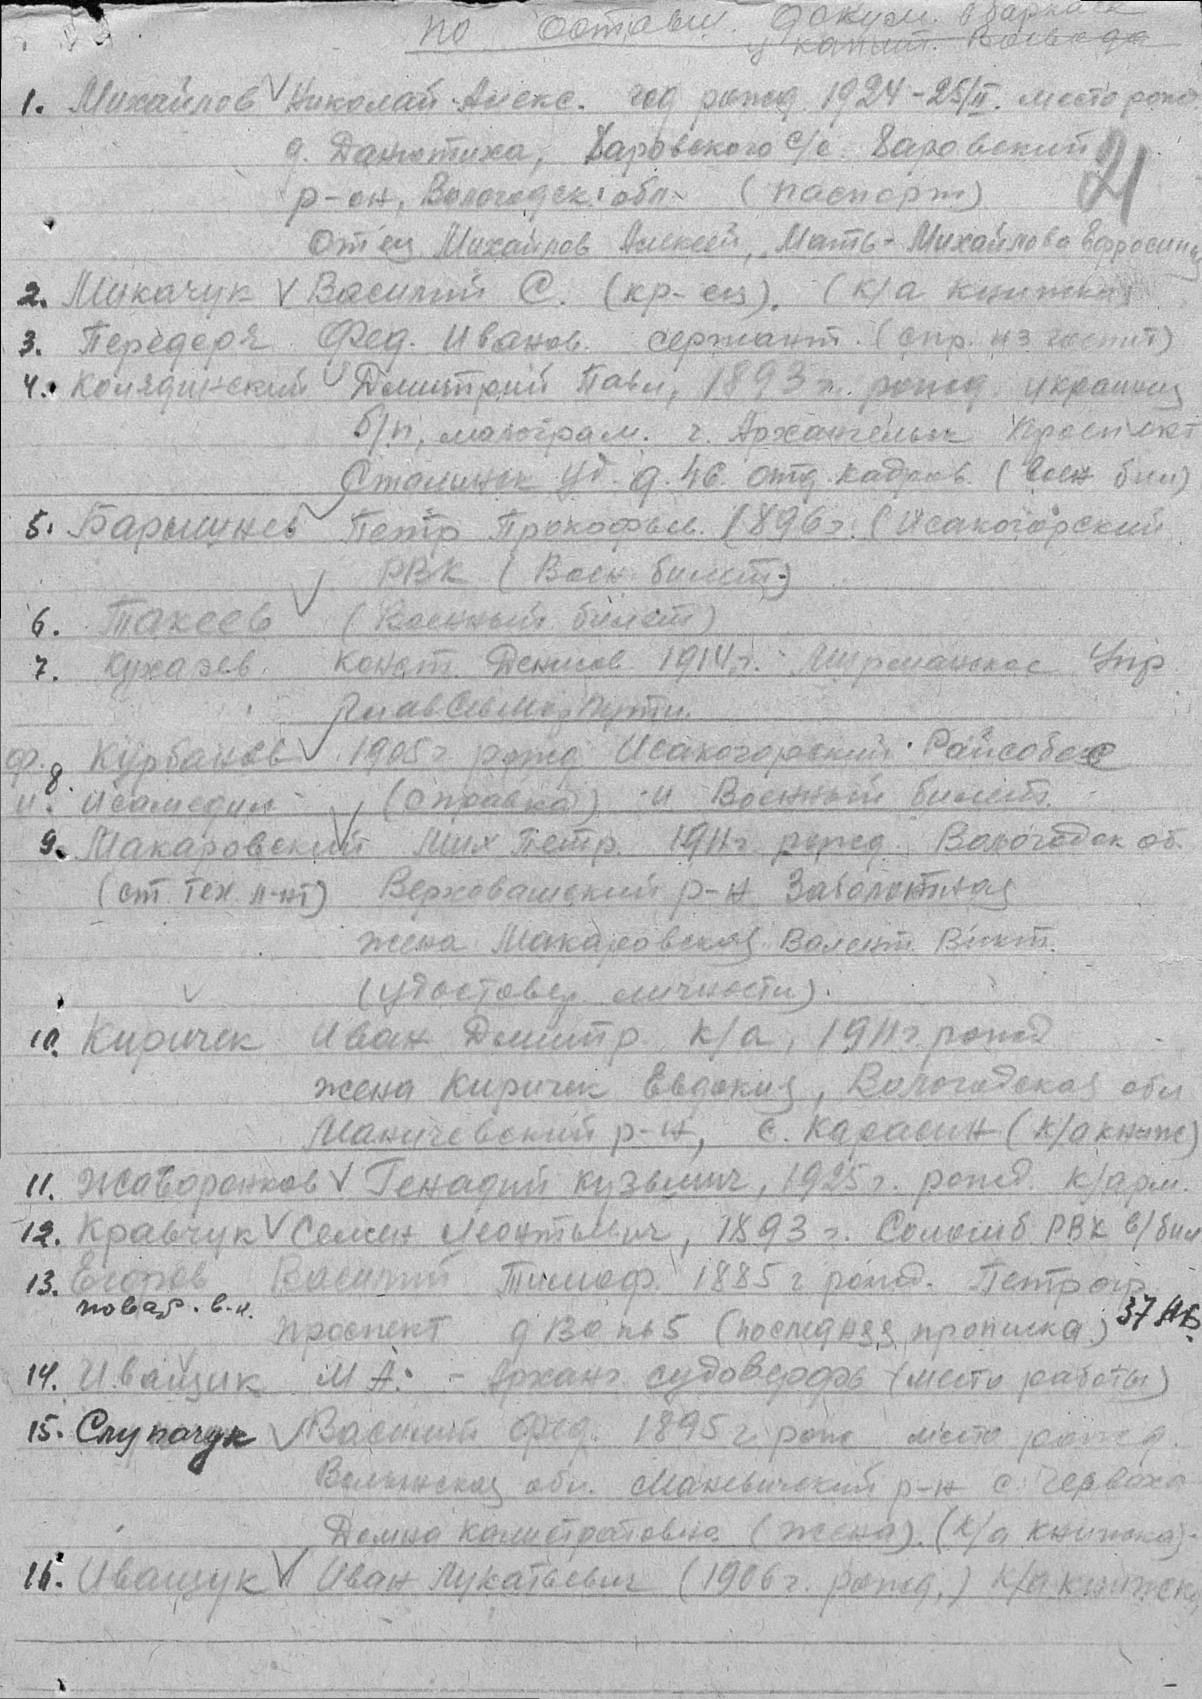 по оставш. докум. в барказе
у капит. Воевода
1. Михайлов √ Николай Алекс. год рожд 1924-25/II. место рожд
д. Данютиха, Харовского с/с. Харовский
21
р-он, Вологодск. обл. (паспорт)
Отец Михайлов Алексей, Мать - Михайлова Ефросинья
2. Микачук √ Василий С. (кр-ец). (к/а книжка)
3. Передеря Фед. Иванов. сержант. (спр. из госпит)
4. Колядинский √ Дмитрий Павл, 1893 г. рожд. украинец
б/п, малограм. г. Архангельск Проспект
Сталинск уд. д. 46. отд. кадров. (Воен бил)
5. Барышнев √ Петр Прокофьев. 1896 г. (Исакогорский
РВК (Воен. билет.)
6. Такеев √ (Военный билет)
7. Кухарев. Конст. Денисов 1914 г. Мурманское Упр
ГлавСевМорПути.
ф. 8. Курбанов √ 1905 г рожд Исакогорский Райсобес
и. Исамедин (справка) и Военный билет.
9. Макаровский √ Мих Петр. 1911 г. рожд. Вологодск об.
(ст. тех л-нт) Верховажский р-н Заболотная
жена Макаровская Валент. Викт.
(удостовер личности).
10. Киричек Иван Дмитр. к/а, 1911 г рожд
жена Киричек Евдокия, Вологодская обл
Маничевский р-н, с. Карасин (к/а книж)
11. Жаворонков √ Генадий Кузьмич, 1925 г. рожд. к/арм.
12. Кравчук √ Семен Леонтьевич, 1893 г. Соломб РВК в/бил
13. Егоров Василий Тимоф. 1885 г рожд. Петрогр.
повар. в.н. проспект д 30 кв 5 (последняя прописка) 37 НВ.
14. Иващик М А. - Арханг судоверфь (место работы)
15. Слупачук √ Василий Фед. 1895 г рож место рожд.
Волынская обл. Маневичский р-н с. Черваха
Домна Калистратовна (жена). (к/а книжка)
16. Иващук √ Иван Лукатьевич (1906 г. рожд.) к/а книжка